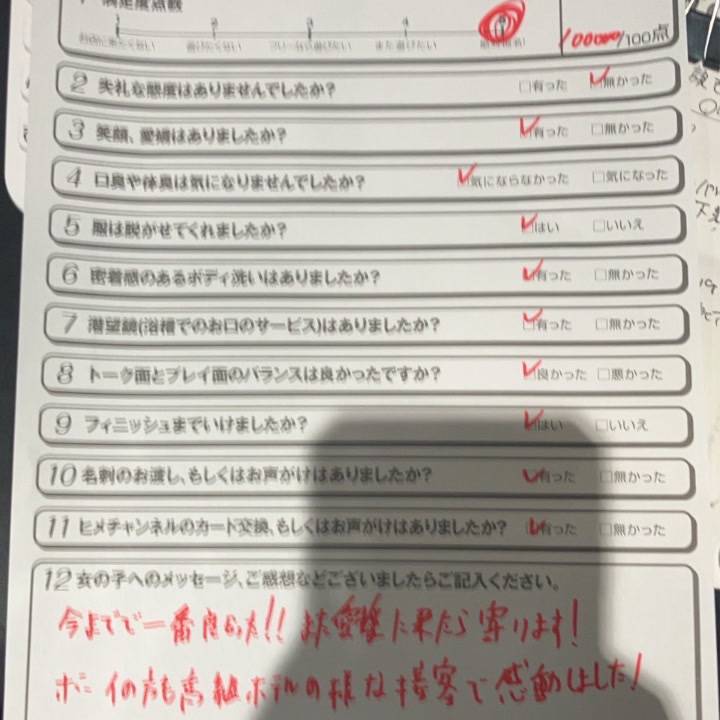 満足度点数
また遊びたい
100000/100点
2 失礼な態度はありませんでしたか? □有った □無かった
3 笑顔、愛嬌はありましたか? □有った □無かった
4 口臭や体臭は気になりませんでしたか? □気にならなかった □気になった
5 服は脱がせてくれましたか? □はい □いいえ
6 密着感のあるボディ洗いはありましたか? □有った □無かった
7 潜望鏡(浴槽でのお口のサービス)はありましたか? □有った □無かった
8 トーク面とプレイ面のバランスは良かったですか? □良かった □悪かった
9 フィニッシュまでいけましたか? □はい □いいえ
10 名刺のお渡し、もしくはお声がけはありましたか? □有った □無かった
11 ヒメチャンネルのカード交換、もしくはお声がけはありましたか? □有った □無かった
12 女の子へのメッセージ、ご感想などございましたらご記入ください。
今までで一番良かった!! また に来たら寄ります!
ボーイの方も高級ホテルの様な接客で感動しました!